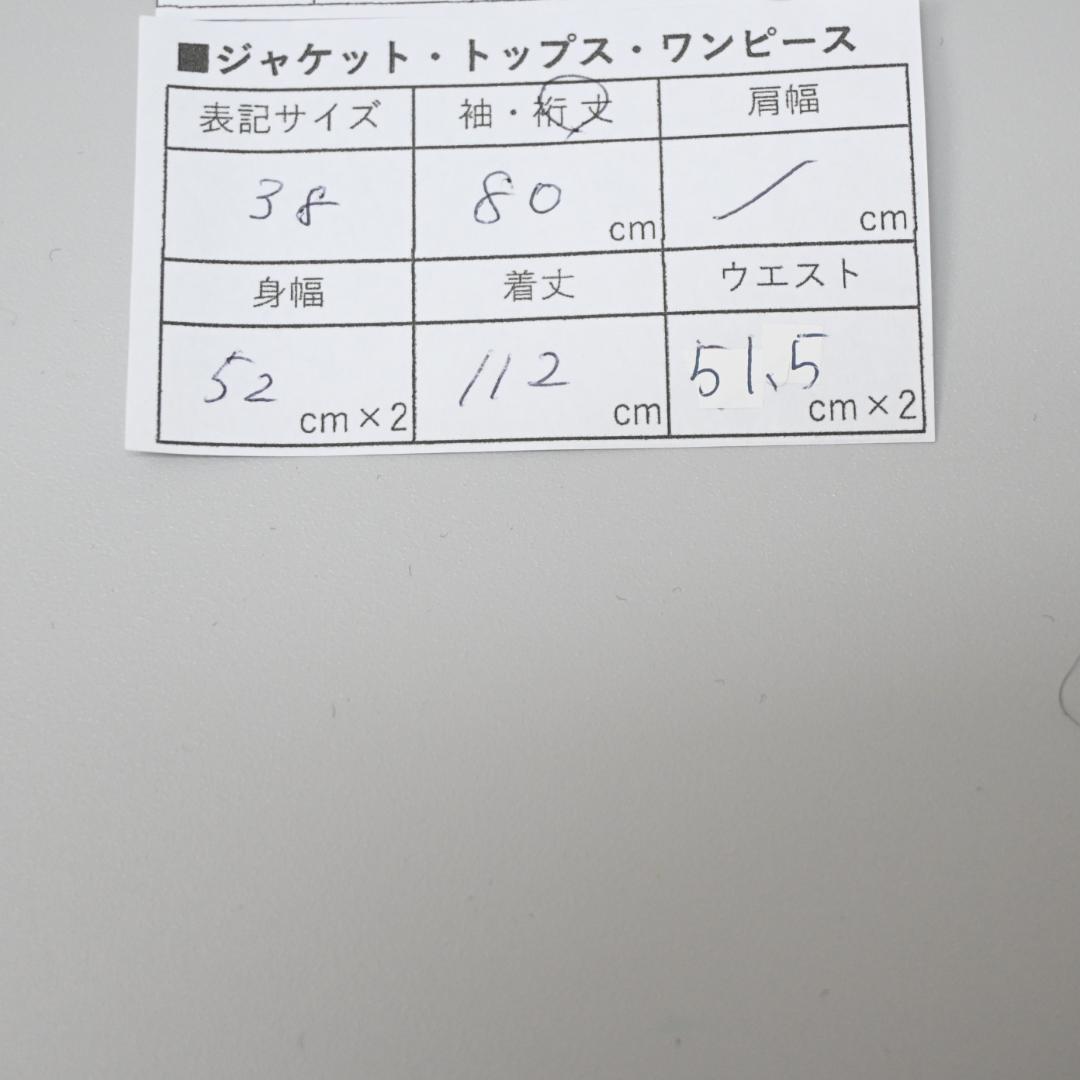 ■ジャケット・トップス・ワンピース
表記サイズ 袖・裄丈 肩幅
38 80 cm / cm
身幅 着丈 ウエスト
52 cm×2 112 cm 51.5 cm×2